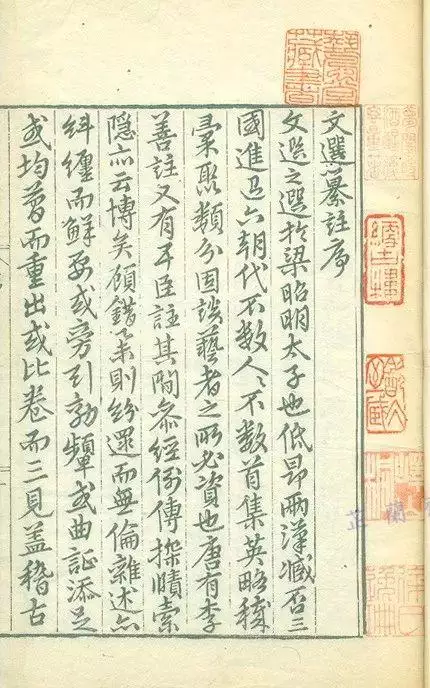 文選纂註序
文選之選於梁昭明太子也低昂兩漢臧否三
國進退六朝代不數人人不數首集英略穢
彙聚類分固談藝者之所必資也唐有李
善註又有五臣註其間參經例傳探賾索
隱亦云博矣顧錯綜則紛還而無倫雜述亦
糾纏而鮮要或旁引効顰或曲証添足
或均簡而重出或比卷而三見蓋稽古
藏書
芷蘭